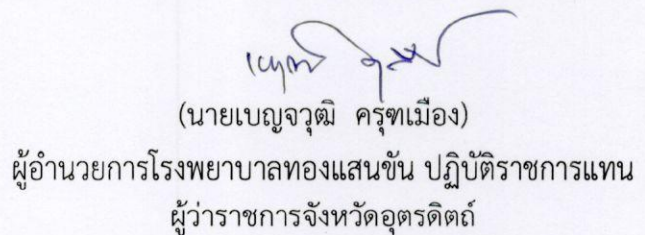 (นายเบญจวุฒิ  ครุฑเมือง)
ผู้อำนวยการโรงพยาบาลทองแสนขัน ปฏิบัติราชการแทน
ผู้ว่าราชการจังหวัดอุตรดิตถ์